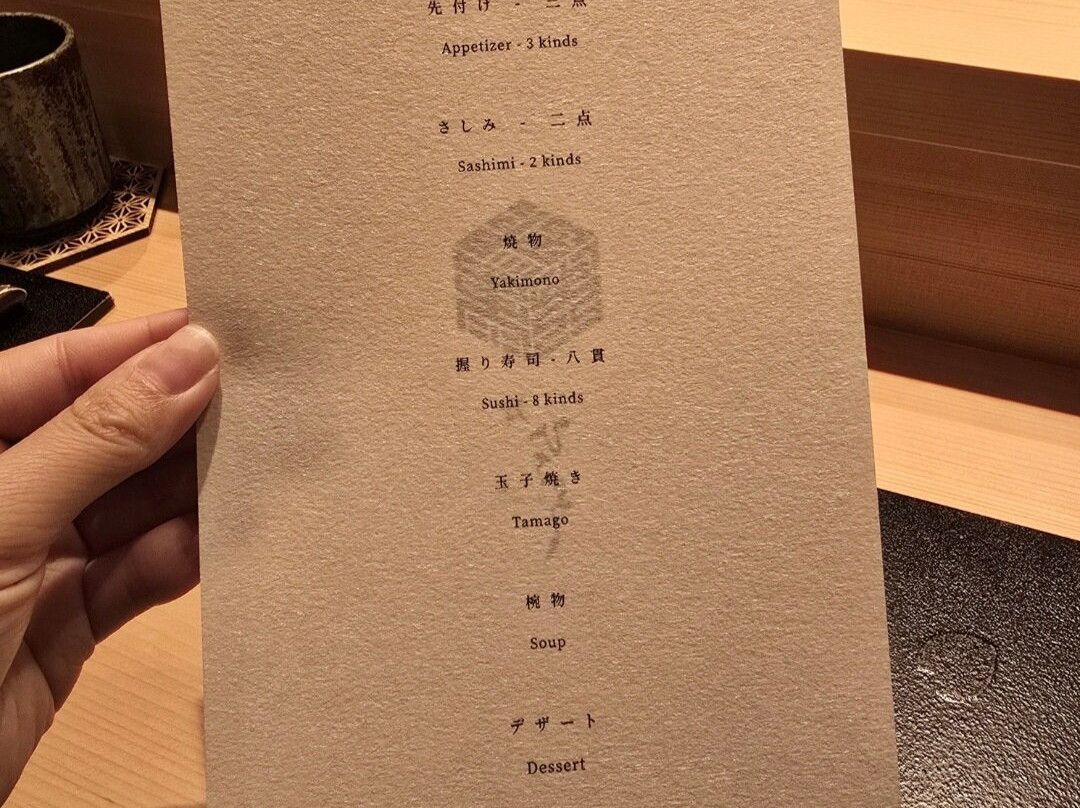 先付け - 三点
Appetizer - 3 kinds
さしみ - 二点
Sashimi - 2 kinds
焼物
Yakimono
握り寿司-八貫
Sushi - 8 kinds
玉子焼き
Tamago
椀物
Soup
デザート
Dessert